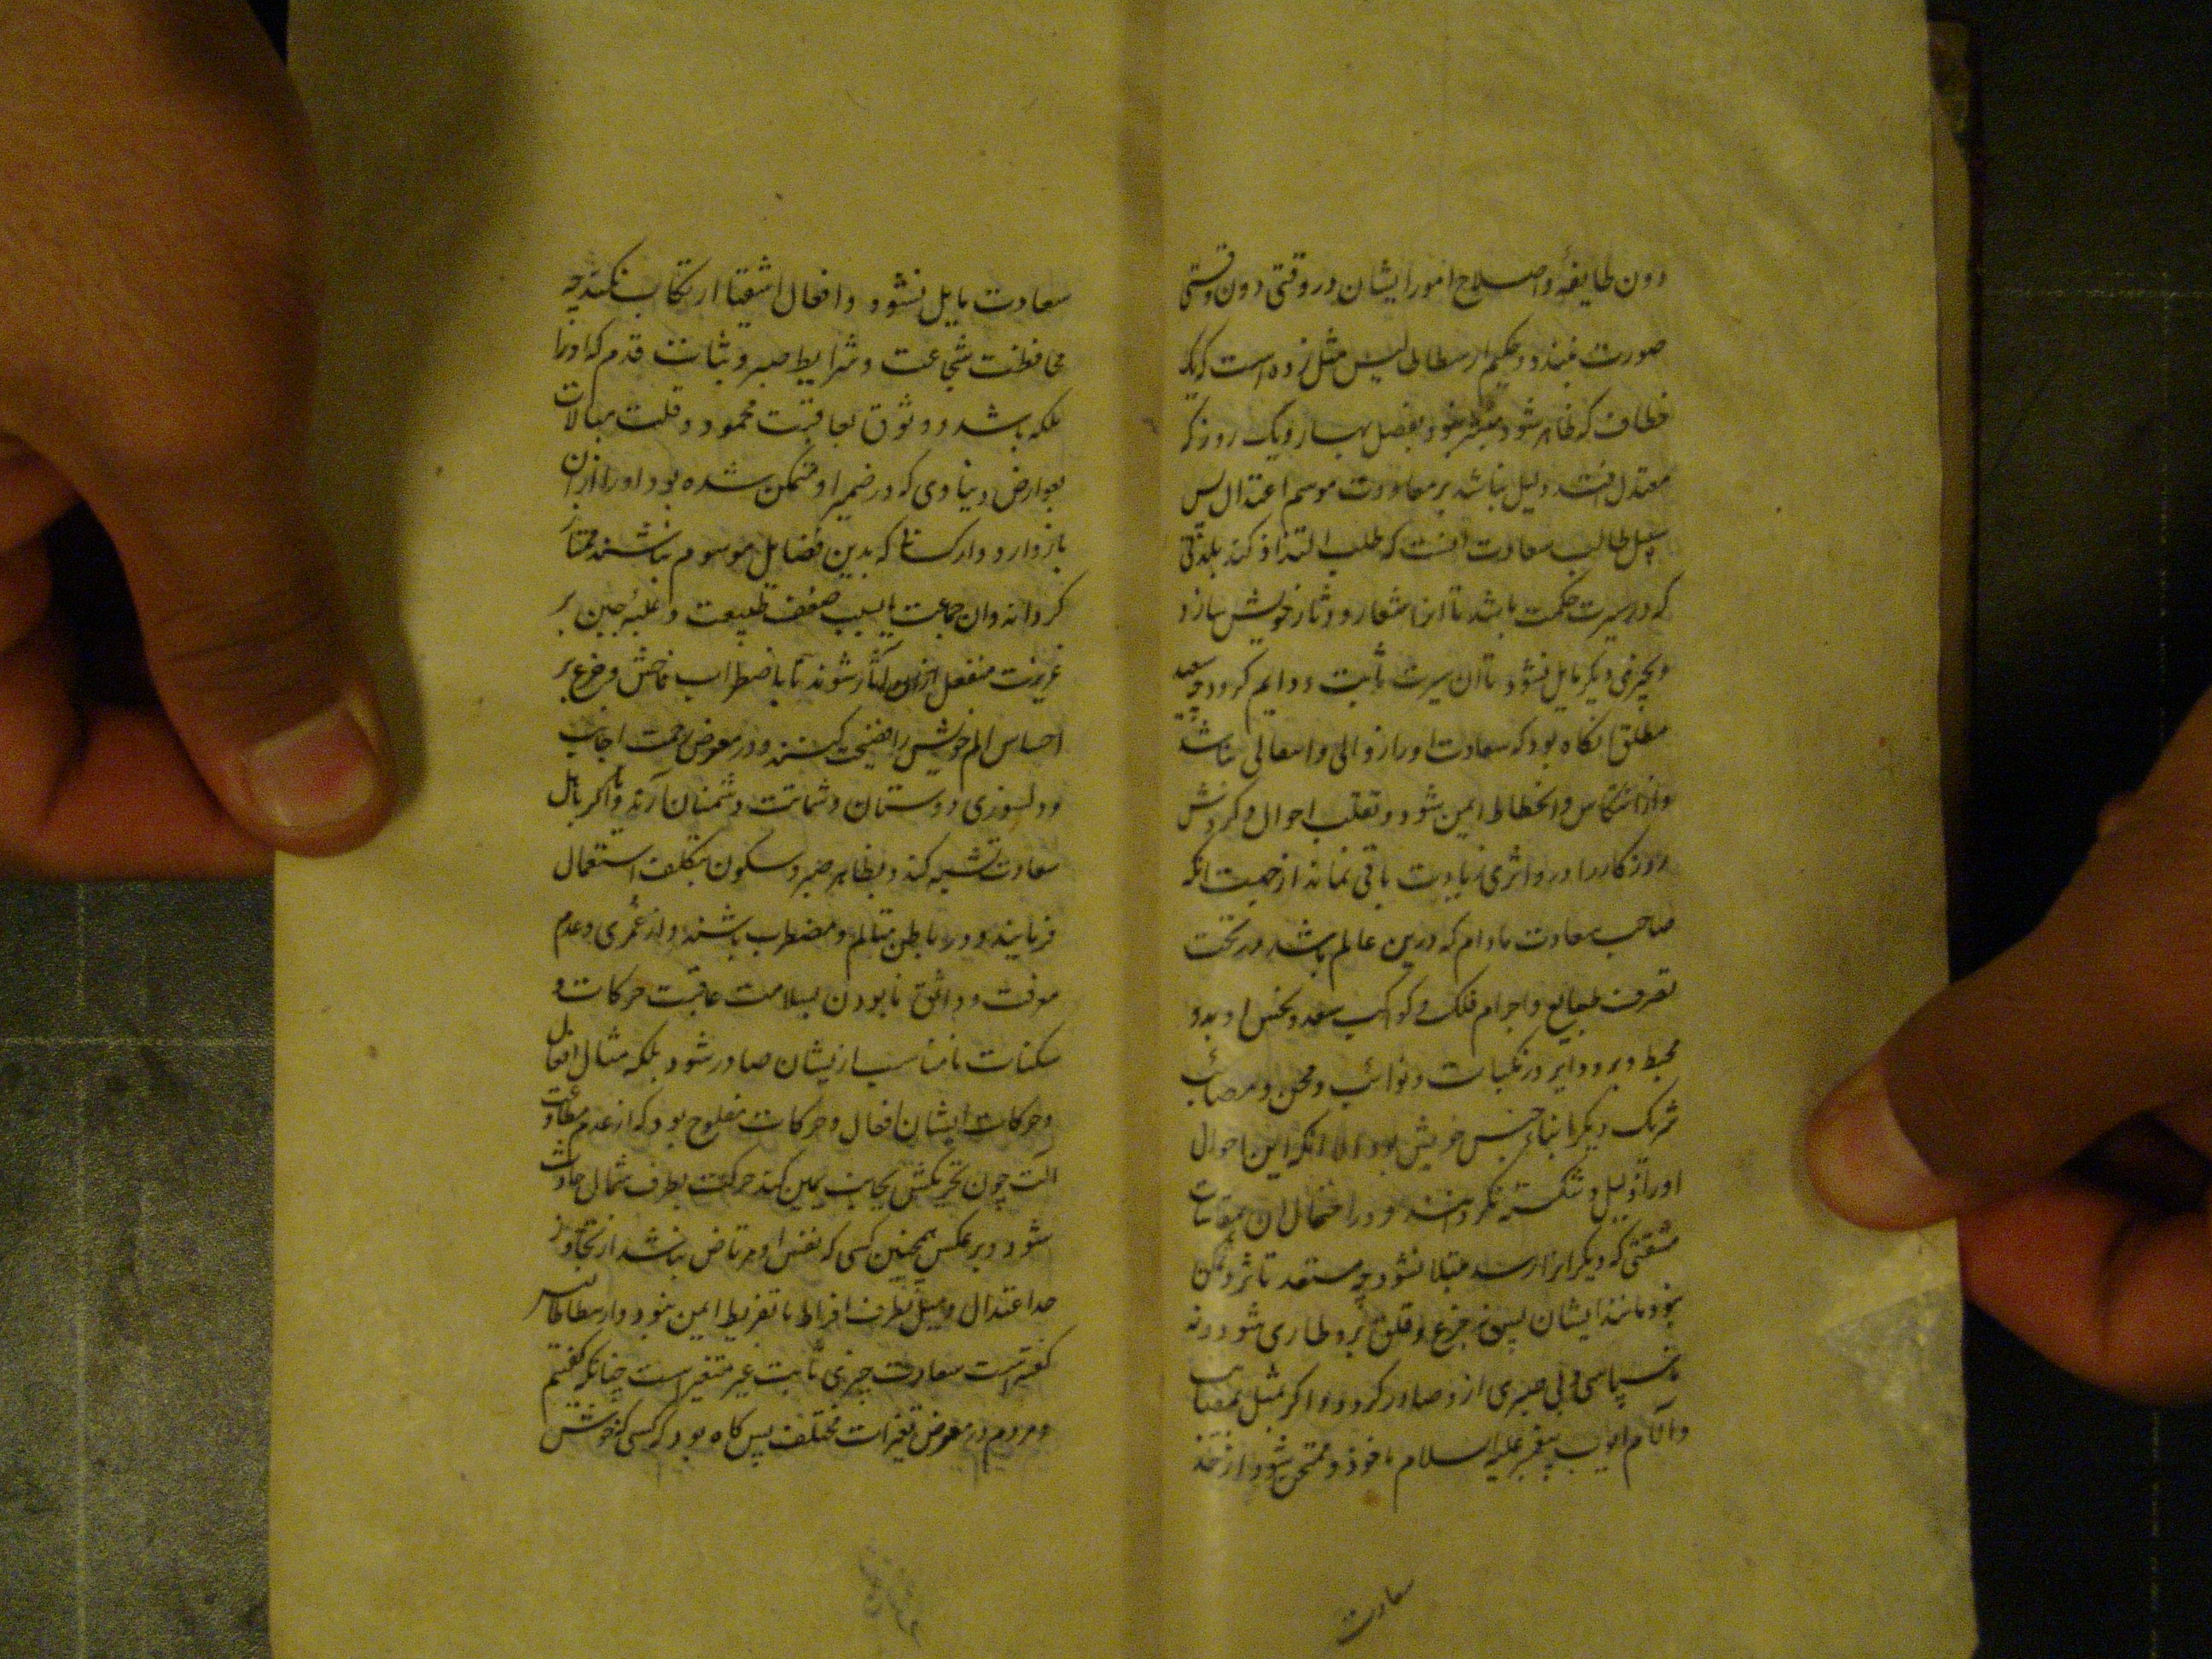 دون طایفهٔ واصلاح امور ایشان در وقتی دون وقتی
صورت نبندد و حکیم ارسطاطالیس مثل زده است که یک
خطاف که ظاهر شود مبشر نبود بفصل بهار و یک روز که
معتدل افتد دلیل نباشد بر معاودت موسم اعتدال پس
سبیل طالب سعادت آنست که طلب التذاذ کند بلذتی
که در سیرت حکمت باشد تا آنرا شعار و دثار خویش سازد
و بچیزی دیگر مایل نشود تا آن سیرت ثابت و دایم گردد چه سعید
مطلق آنگاه بود که سعادت او را زوالی و انتقالی نباشد
و از انتکاس و انحطاط ایمن شود و تقلب احوال و گردش
روزگار را در او اثری زیادت باقی نماند از جهت آنکه
صاحب سعادت مادام که درین عالم باشد در تحت
تصرف طبایع و اجرام فلک و کواکب سعد و نحس او بدو
محیط و برو دایر و در نکبات و نوائب و محن و مصائب
شریک دیگر ابناء جنس خویش بود الا آنکه این احوال
او را ذلیل و شکسته نگرداند و در احتمال آن مقاسات
مشقتی که دیگرانرا رسد مبتلا نشود چه مستعد تأثر
نبود مانند ایشان پس نه جزع و قلق برو طاری شود و نه
ناسپاسی و بی صبری ازو صادر گردد و اگر بمثل بمصائب
و آلام ایوب پیغمبر علیه السلام ماخوذ و ممتحن شود از حد
سعادت
سعادت مایل نشود و افعال اشقیا ارتکاب نکند چه
محافظت شجاعت و شرایط صبر و ثبات قدم که او را
ملکه باشد و وثوق بعاقبت محمود و قلت مبالات
بعوارض دنیاوی که در ضمیر او متمکن شده بود او را از آن
باز دارد و از کسانی که بدین فضایل موسوم نباشند ممتاز
گرداند و ان جماعت یا بسبب ضعف طبیعت و غلبهٔ جبن بر
غریزت منفعل ازین آثار شوند تا باضطراب فاحش و جزع بر
احساس الم خویش را فضیحت کنند و در معرض رحمت اجانب
و دلسوزی دوستان و شماتت دشمنان آرند و یا اگر باهل
سعادت تشبه کنند و بظاهر صبر و سکون بتکلف استعمال
فرمایند و در باطن متالم و مضطرب باشند و از غمری و عدم
معرفت و واثق نابودن بسلامت عاقبت حرکات و
سکنات نامناسب ازیشان صادر شود بلکه مثال افعال
و حرکات ایشان افعال و حرکات مفلوج بود که از عدم مطاوعت
آلت چون تحریکش بجانب یمین کند حرکت بطرف شمال حادث
شود و بر عکس همچنین کسی که نفس او مرتاض نباشد از تجاوز
حد اعتدال و میل بطرف افراط یا تفریط ایمن نبود و ارسطاطالیس
گفته است سعادت چیزی ثابت غیر متغیر است چنانکه گفتیم
و مردم در معرض تغیرات مختلف پس گاه بود که کسی که خوشترین